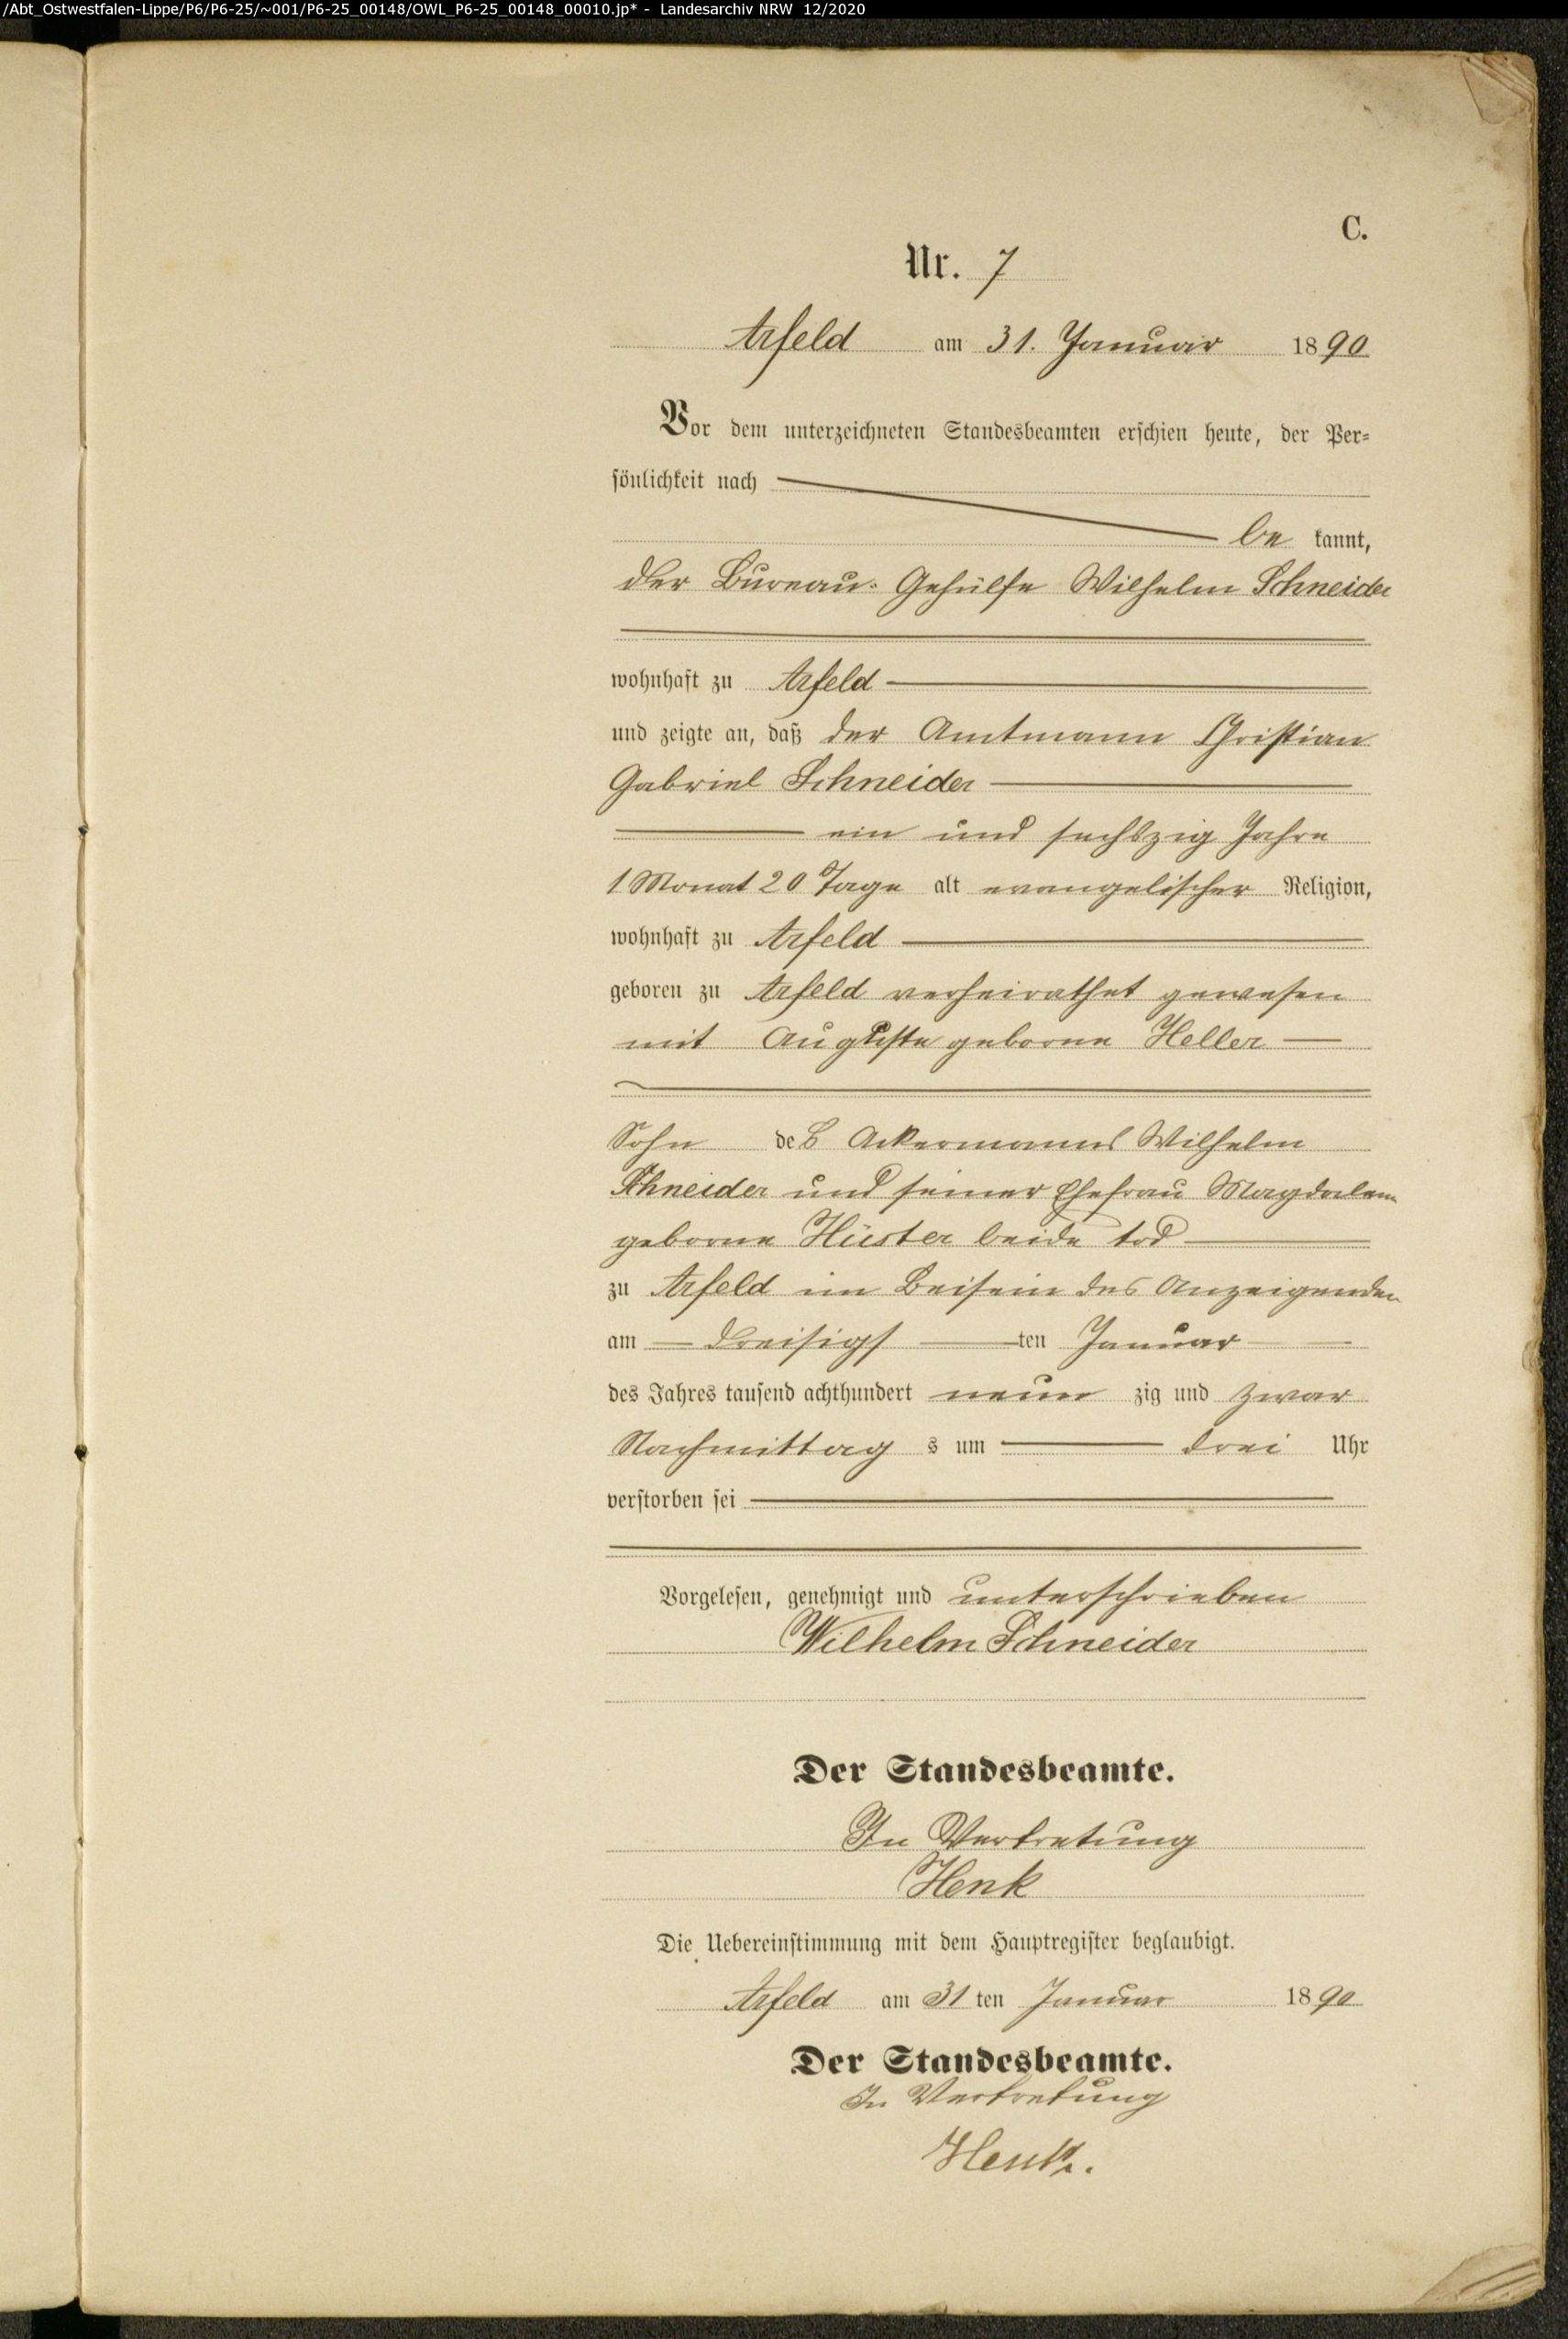 /Abt_Ostwestfalen-Lippe/P6/P6-25/~001/P6-25_00148/OWL_P6-25_00148_00010.jp* - Landesarchiv NRW 12/2020
C.
Nr. 7
Arfeld am 31. Januar 1890
Vor dem unterzeichneten Standesbeamten erschien heute, der Per=
sönlichkeit nach
be kannt,
der Bureau-Gehülfe Wilhelm Schneider
wohnhaft zu Arfeld
und zeigte an, daß der Amtmann Christian
Gabriel Schneider
ein und sechszig Jahre
1 Monat 20 Tage alt evangelischer Religion,
wohnhaft zu Arfeld
geboren zu Arfeld verheirathet gewesen
mit Auguste geborne Heller
Sohn des Ackermanns Wilhelm
Schneider und seiner Ehefrau Magdalena
geborne Hüster beide tod
zu Arfeld im Beisein des Anzeigenden
am dreisigs ten Januar
des Jahres tausend achthundert neun zig und zwar
Nachmittag s um drei Uhr
verstorben sei
Vorgelesen, genehmigt und unterschrieben
Wilhelm Schneider
Der Standesbeamte.
In Vertretung
Henk
Die Uebereinstimmung mit dem Hauptregister beglaubigt.
Arfeld am 31 ten Januar 1890
Der Standesbeamte.
In Vertretung
Henk.